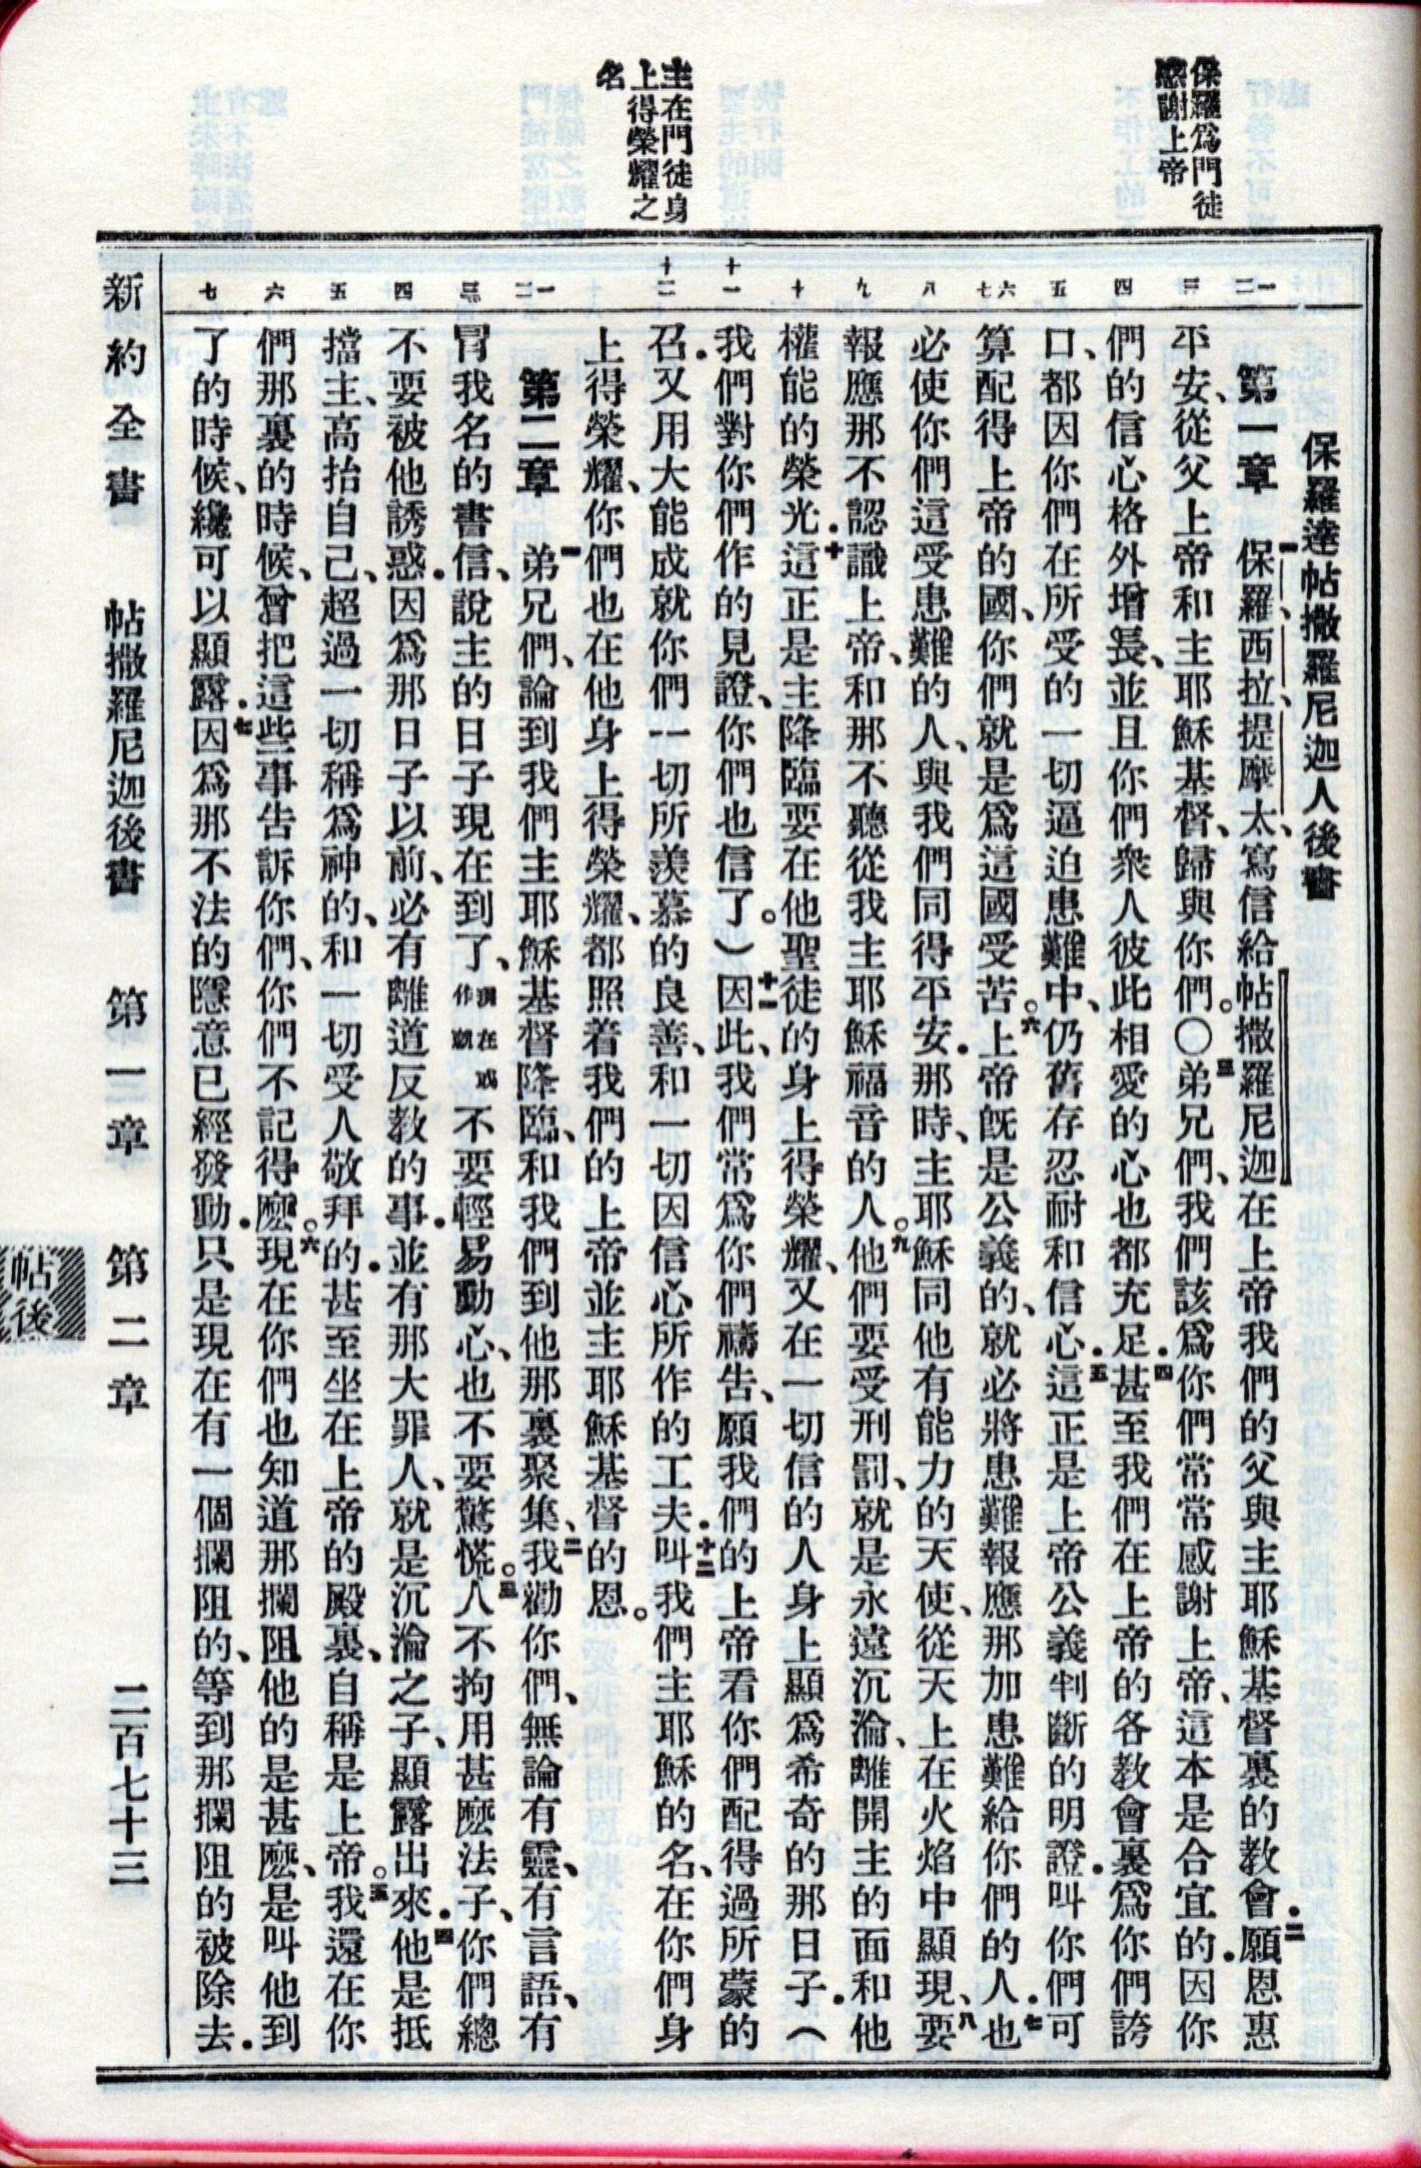 保羅爲門徒
感謝上帝
主在門徒身
上得榮耀之
名
保羅達帖撒羅尼迦人後書
第一章 一保羅、西拉、提摩太、寫信給帖撒羅尼迦在上帝我們的父與主耶穌基督裏的教會．二願恩惠
平安、從父上帝和主耶穌基督、歸與你們。〇三弟兄們、我們該爲你們常常感謝上帝、這本是合宜的．因你
們的信心格外增長、並且你們衆人彼此相愛的心也都充足．四甚至我們在上帝的各教會裏爲你們誇
口、都因你們在所受的一切逼迫患難中、仍舊存忍耐和信心．五這正是上帝公義判斷的明證．叫你們可
算配得上帝的國、你們就是爲這國受苦。六上帝旣是公義的、就必將患難報應那加患難給你們的人．七也
必使你們這受患難的人、與我們同得平安．那時、主耶穌同他有能力的天使、從天上在火焰中顯現、八要
報應那不認識上帝、和那不聽從我主耶穌福音的人。九他們要受刑罰、就是永遠沉淪、離開主的面和他
權能的榮光．十這正是主降臨要在他聖徒的身上得榮耀、又在一切信的人身上顯爲希奇的那日子．（
我們對你們作的見證、你們也信了。）十一因此、我們常爲你們禱告、願我們的上帝看你們配得過所蒙的
召．又用大能成就你們一切所羨慕的良善、和一切因信心所作的工夫．十二叫我們主耶穌的名、在你們身
上得榮耀、你們也在他身上得榮耀、都照着我們的上帝並主耶穌基督的恩。
第二章 一弟兄們、論到我們主耶穌基督降臨、和我們到他那裏聚集、二我勸你們、無論有靈、有言語、有
冒我名的書信、說主的日子現在到了、現在或作就不要輕易動心、也不要驚慌。三人不拘用甚麼法子、你們總
不要被他誘惑．因爲那日子以前、必有離道反教的事．並有那大罪人、就是沉淪之子、顯露出來．四他是抵
擋主、高抬自己、超過一切稱爲神的、和一切受人敬拜的．甚至坐在上帝的殿裏、自稱是上帝。五我還在你
們那裏的時候、曾把這些事告訴你們、你們不記得麼。六現在你們也知道那攔阻他的是甚麼、是叫他到
了的時候、纔可以顯露．七因爲那不法的隱意已經發動．只是現在有一個攔阻的、等到那攔阻的被除去．
一二
三
四
五
六七
八
九
十
十一
十二
一二
三
四
五
六
七
新約全書 帖撒羅尼迦後書 第一章 第二章 二百七十三
帖後